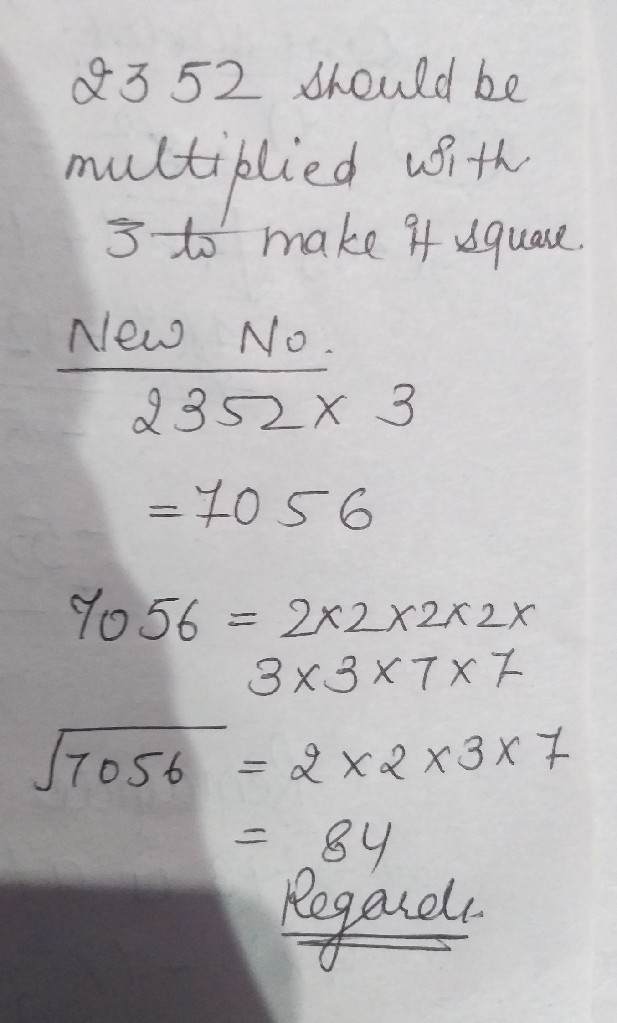 2352 should be
multiplied with
3 to make it square.
New No.
2352 x 3
= 7056
7056 = 2x2x2x2x
3x3x7x7
√7056 = 2x2x3x7
= 84
Regards